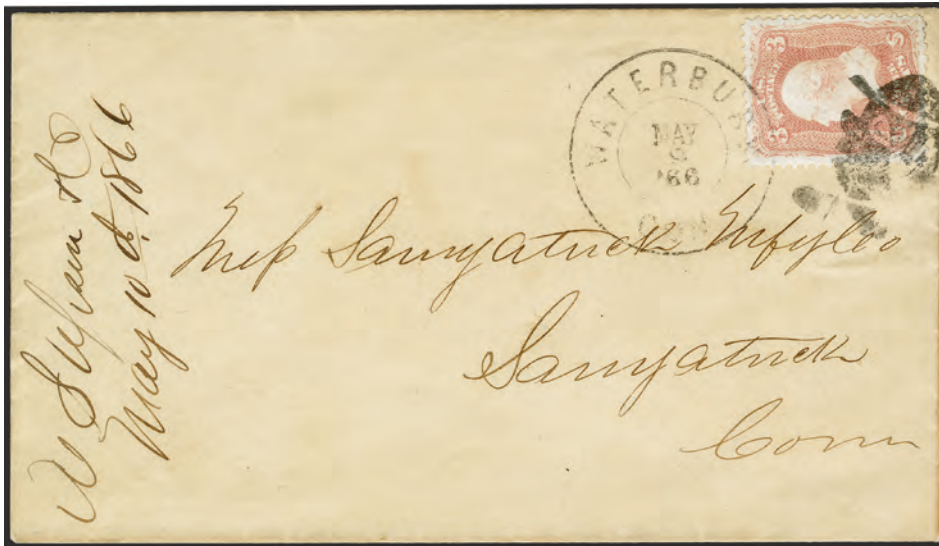 WATERBURY
MAY
'66
CONN
3
Mess Saugatuck Mfg Co
Saugatuck
Conn
May 10th 1866